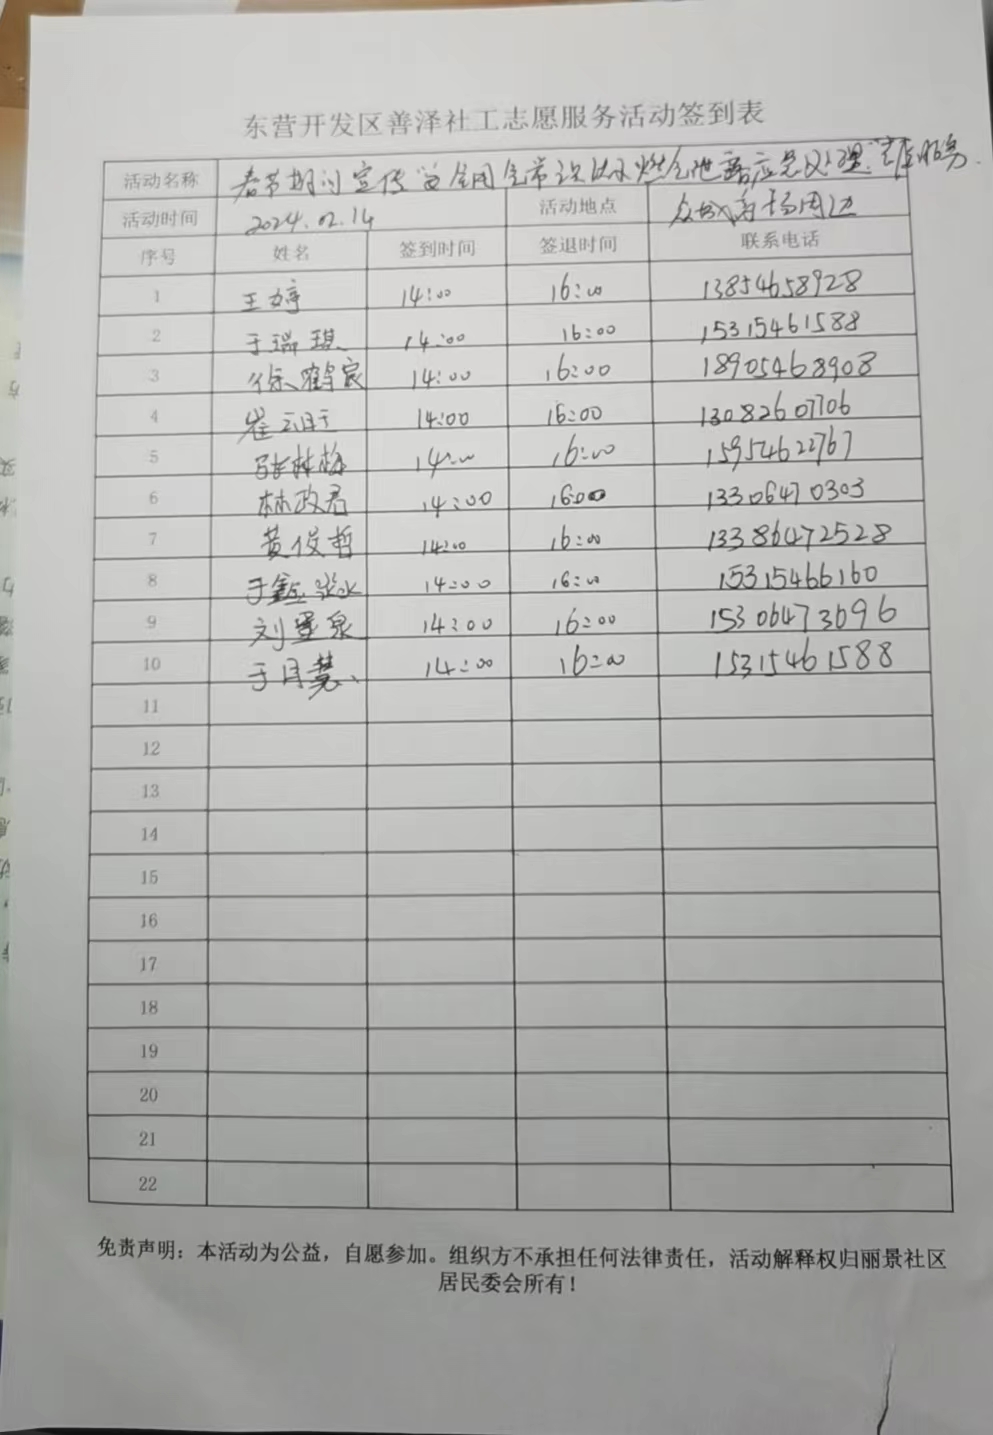 东营开发区善泽社工志愿服务活动签到表
活动名称 春节期间宣传安全用气常识以及燃气泄露应急处理志愿服务
活动时间 2024.02.14 活动地点 周边
序号 姓名 签到时间 签退时间 联系电话
1 王婷 14:00 16:00 13854658928
2 于瑞琪 14:00 16:00 15315461588
3 徐鹤宸 14:00 16:00 18905468908
4 崔 14:00 16:00 13082607706
5 张林梅 14:00 16:00 15954622767
6 林政君 14:00 16:00 13306470303
7 黄俊哲 14:00 16:00 13386472528
8 于鑫淼 14:00 16:00 15315466160
9 刘墨泉 14:00 16:00 15306473696
10 于月慧 14:00 16:00 15315461588
11
12
13
14
15
16
17
18
19
20
21
22
免责声明：本活动为公益，自愿参加。组织方不承担任何法律责任，活动解释权归丽景社区
居民委会所有！